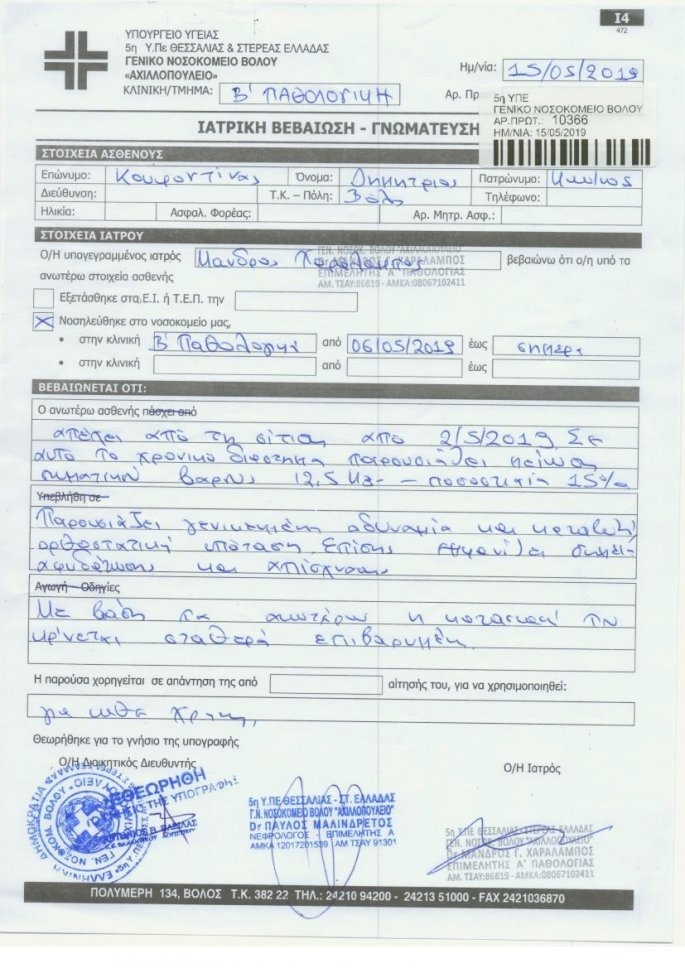 Ι4
472
ΥΠΟΥΡΓΕΙΟ ΥΓΕΙΑΣ
5η Υ.Πε ΘΕΣΣΑΛΙΑΣ & ΣΤΕΡΕΑΣ ΕΛΛΑΔΑΣ
ΓΕΝΙΚΟ ΝΟΣΟΚΟΜΕΙΟ ΒΟΛΟΥ
«ΑΧΙΛΛΟΠΟΥΛΕΙΟ»
ΚΛΙΝΙΚΗ/ΤΜΗΜΑ: Β' ΠΑΘΟΛΟΓΙΚΗ
Ημ/νία: 15/05/2019
Αρ. Πρ
5η ΥΠΕ
ΓΕΝΙΚΟ ΝΟΣΟΚΟΜΕΙΟ ΒΟΛΟΥ
ΑΡ.ΠΡΩΤ.: 10366
ΗΜ/ΝΙΑ: 15/05/2019
ΙΑΤΡΙΚΗ ΒΕΒΑΙΩΣΗ - ΓΝΩΜΑΤΕΥΣΗ
ΣΤΟΙΧΕΙΑ ΑΣΘΕΝΟΥΣ
Επώνυμο: Κουφοντίνας Όνομα: Δημήτριος Πατρώνυμο:
Διεύθυνση: Τ.Κ. – Πόλη: Βόλος Τηλέφωνο:
Ηλικία: Ασφαλ. Φορέας: Αρ. Μητρ. Ασφ.:
ΣΤΟΙΧΕΙΑ ΙΑΤΡΟΥ
Ο/Η υπογεγραμμένος ιατρός Μάνδρος Χαράλαμπος βεβαιώνω ότι ο/η υπό τα
ΓΕΝ. ΝΟΣΟΚ. ΒΟΛΟΥ "ΑΧΙΛΛΟΠΟΥΛΕΙΟ"
ΜΑΝΔΡΟΣ Γ. ΧΑΡΑΛΑΜΠΟΣ
ΕΠΙΜΕΛΗΤΗΣ Α' ΠΑΘΟΛΟΓΙΑΣ
ΑΜ. ΤΣΑΥ:86819 - ΑΜΚΑ:08067102411
ανωτέρω στοιχεία ασθενής
Εξετάσθηκε στα Ε.Ι. ή Τ.Ε.Π. την
Νοσηλεύθηκε στο νοσοκομείο μας,
• στην κλινική Β' Παθολογική από 06/05/2019 έως σήμερα
• στην κλινική από έως
ΒΕΒΑΙΩΝΕΤΑΙ ΟΤΙ:
Ο ανωτέρω ασθενής πάσχει από
απέχει από τη σίτιση από 2/5/2019 Σε
αυτό το χρονικό διάστημα παρουσιάζει μείωση
σωματικού βάρους 12,5 – ποσοστιαία 15%
Υπεβλήθη σε
Παρουσιάζει γενικευμένη αδυναμία και
ορθοστατική υπόταση. Επίσης εμφανίζει σημεία
αφυδάτωσης και απίσχνανση
Αγωγή – Οδηγίες
Με βάση τα ανωτέρω η κατάστασή του
κρίνεται σταθερά επιβαρυμένη.
Η παρούσα χορηγείται σε απάντηση της από αίτησής του, για να χρησιμοποιηθεί:
για κάθε χρήση,
Θεωρήθηκε για το γνήσιο της υπογραφής
Ο/Η Διοικητικός Διευθυντής
Ο/Η Ιατρός
ΕΘΕΩΡΗΘΗ
ΤΗΣ ΥΠΟΓΡΑΦΗΣ
5η Υ.ΠΕ ΘΕΣΣΑΛΙΑΣ - ΣΤ. ΕΛΛΑΔΑΣ
Γ.Ν. ΝΟΣΟΚΟΜΕΙΟ ΒΟΛΟΥ "ΑΧΙΛΛΟΠΟΥΛΕΙΟ"
Dr ΠΑΥΛΟΣ ΜΑΛΙΝΔΡΕΤΟΣ
ΝΕΦΡΟΛΟΓΟΣ - ΕΠΙΜΕΛΗΤΗΣ Α
ΑΜΚΑ 12017201539 ΑΜ ΤΣΑΥ 91301
5η Υ.ΠΕ ΘΕΣΣΑΛΙΑΣ-ΣΤΕΡΕΑΣ ΕΛΛΑΔΑΣ
ΓΕΝ. ΝΟΣΟΚ. ΒΟΛΟΥ "ΑΧΙΛΛΟΠΟΥΛΕΙΟ"
Dr ΜΑΝΔΡΟΣ Γ. ΧΑΡΑΛΑΜΠΟΣ
ΕΠΙΜΕΛΗΤΗΣ Α' ΠΑΘΟΛΟΓΙΑΣ
ΑΜ. ΤΣΑΥ:86819 - ΑΜΚΑ:08067102411
ΠΟΛΥΜΕΡΗ 134, ΒΟΛΟΣ Τ.Κ. 382 22 ΤΗΛ.: 24210 94200 - 24213 51000 - FAX 2421036870